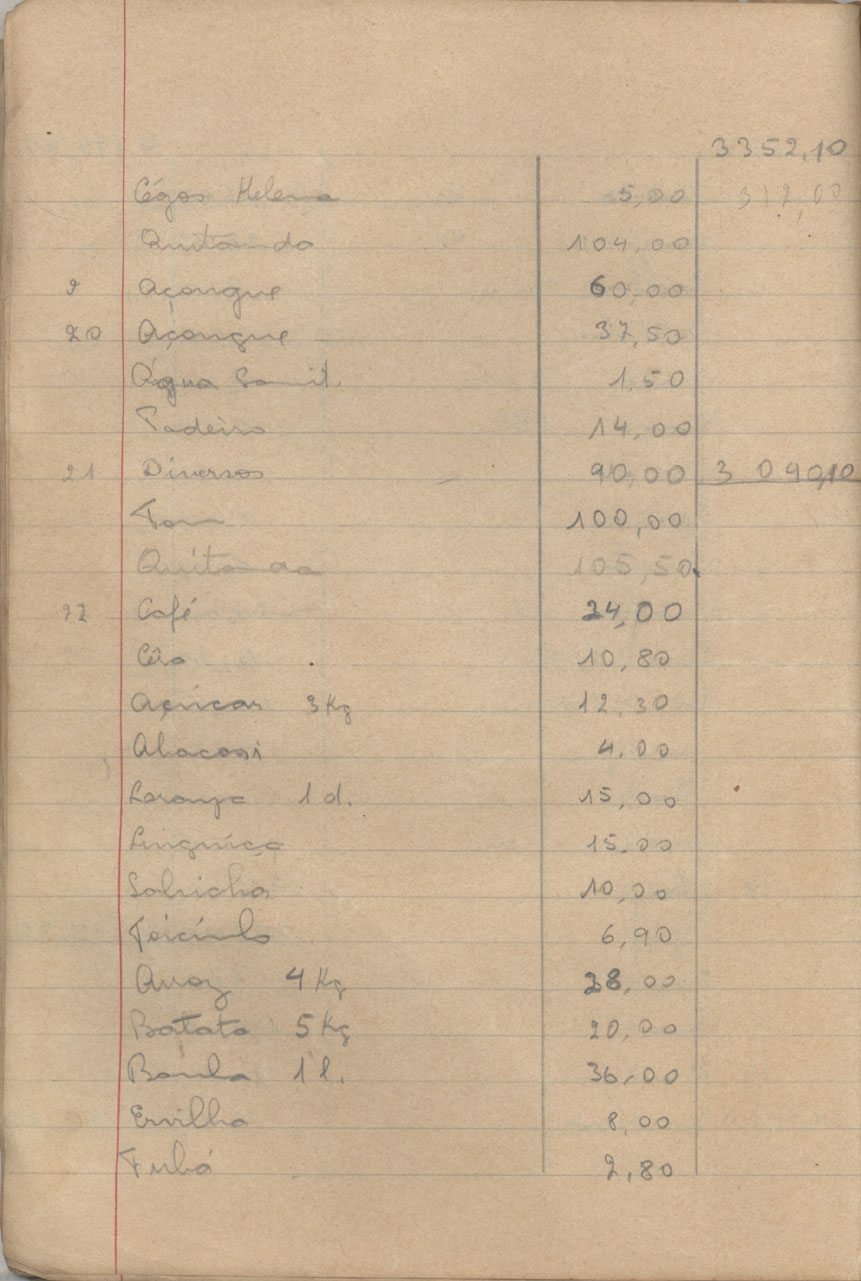 3352,10
Cégos Helena 5,00 312,00
Quitanda 104,00
9 Açougue 60,00
20 Açougue 37,50
Água Sanit. 1,50
Padeiro 14,00
21 Diversos 90,00 3 040,10
100,00
Quitanda 105,50
22 Café 24,00
10,80
Açúcar 3 Kg 12,30
Abacaxi 4,00
Laranja 1 d. 15,00
Linguiça 15,00
Salsicha 10,00
Toicinho 6,90
Arroz 4 Kg 28,00
Batata 5 Kg 20,00
Banha 1 l. 36,00
Ervilha 8,00
Fubá 2,80